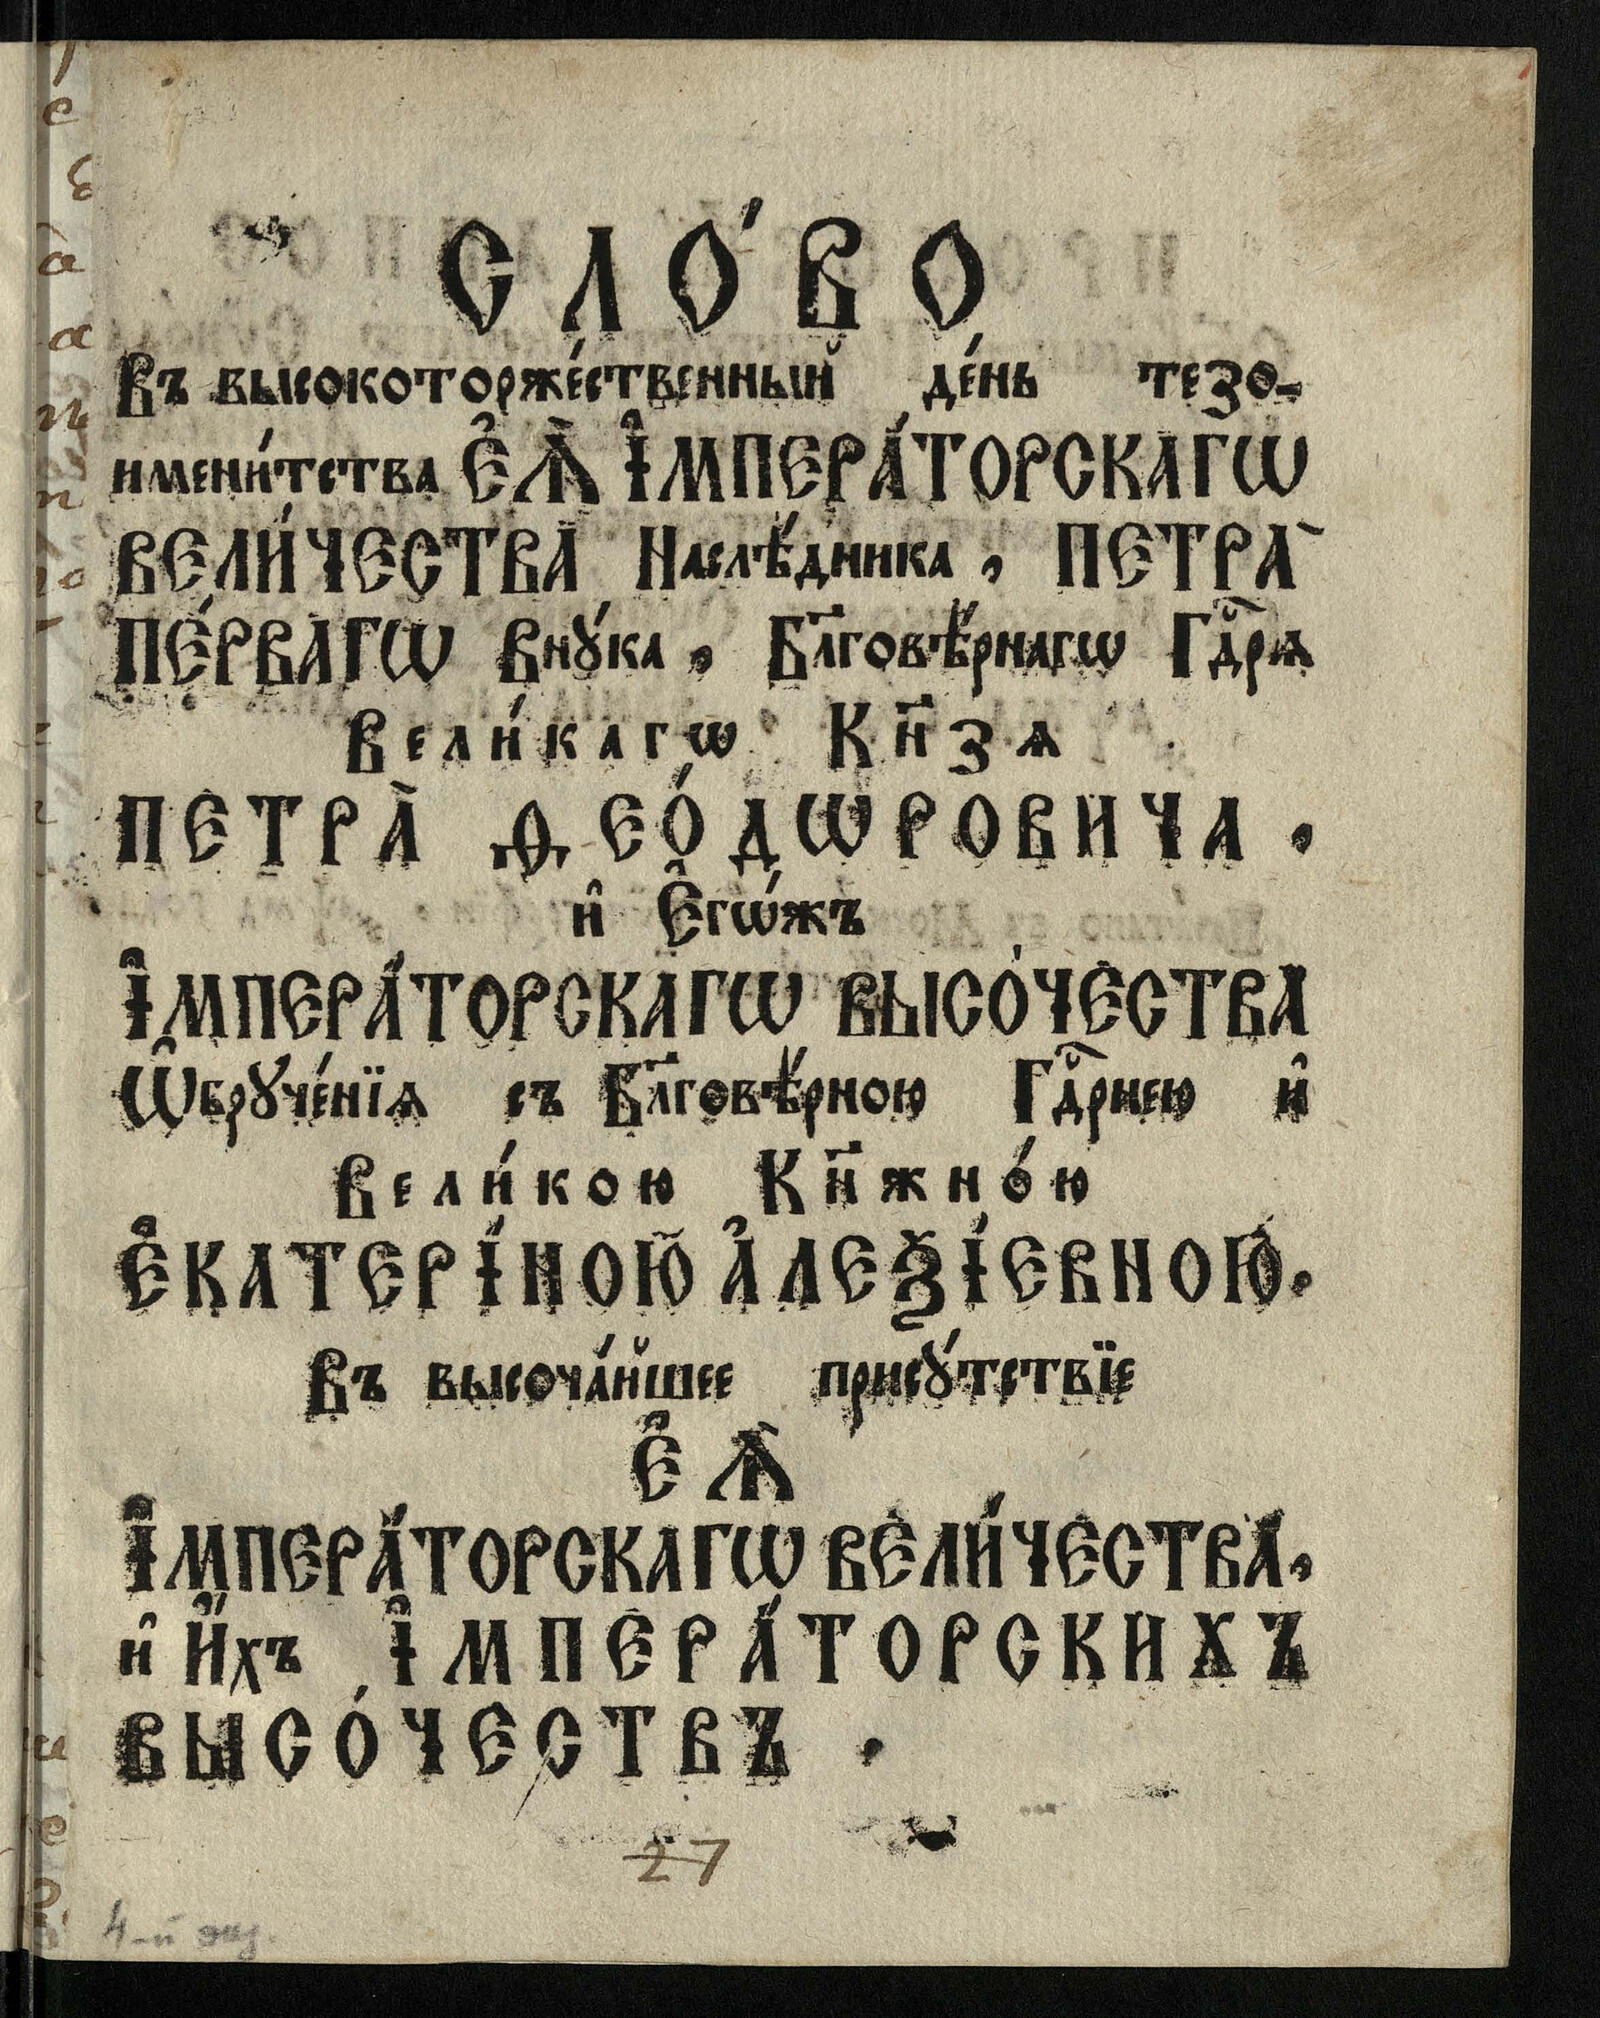 СЛО́ВО
Въ высокоторже́ственный де́нь тезо-
имени́тства Є҆Ѧ̀ І҆МПЕРА́ТОРСКАГѠ
ВЕЛИ́ЧЕСТВА Наслѣ́дника, ПЕТРА̀
ПЕ́РВАГѠ Внꙋ́ка, Бл҃говѣ́рнагѡ Гдⷭ҇рѧ
Вели́кагѡ Кн҃зѧ
ПЕТРА̀ Ѳ̑ЕО́ДѠРОВИЧА.
и҆ Є҆гѡ́жъ
І҆МПЕРА́ТОРСКАГѠ ВЫСО́ЧЕСТВА
Ѡ҆брꙋче́нїѧ съ Бл҃говѣ́рною Гдⷭ҇рнею и҆
Вели́кою Кн҃жно́ю
Є҆КАТЕРІ́НОЮ А҆ЛЕѮІ́ЕВНОЮ.
Въ высоча́йшее присꙋ́тствїе
Є҆Ѧ̀
І҆МПЕРА́ТОРСКАГѠ ВЕЛИ́ЧЕСТВА,
и҆ И҆́хъ І҆МПЕРА́ТОРСКИХЪ
ВЫСО́ЧЕСТВЪ.
27
4-й экз.